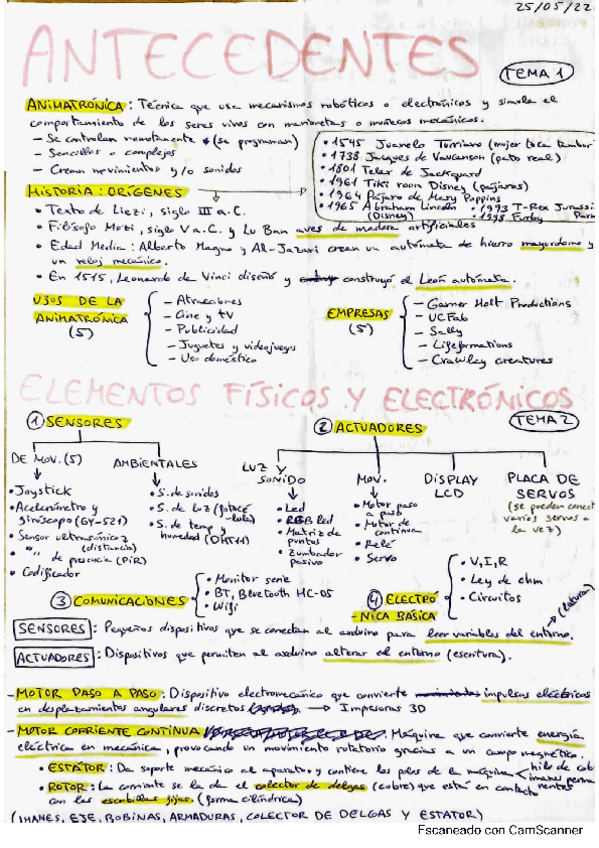 25/05/22
ANTECEDENTES
TEMA 1
ANIMATRÓNICA: Técnica que usa mecanismos robóticos o electrónicos y simula el
comportamiento de los seres vivos con marionetas o muñecos mecánicos.
- Se controlan remotamente (se programan)
- Sencillos o complejos
- Crean movimientos y/o sonidos
• 1545 Juanelo Turriano (mujer toca tambor
• 1738 Jacques de Vaucanson (pato real)
• 1801 Telar de Jackquard
• 1961 Tiki room Disney (pájaros)
• 1964 Pájaro de Mary Poppins
• 1965 Abraham Lincoln (Disney)
• 1993 T-Rex Jurassi
• 1998 Furby
HISTORIA: ORÍGENES
• Texto de Liezi, siglo III a.C.
• Filósofo Mozi, siglo V a.C. y Lu Ban aves de madera artificiales
• Edad Media: Alberto Magno y Al-Jazari crean un autómata de hierro mayordomo y
un reloj mecánico.
• En 1515, Leonardo da Vinci diseñó y construyó el León autómata.
USOS DE LA ANIMATRÓNICA (5)
- Atracciones
- Cine y tv
- Publicidad
- Juguetes y videojuegos
- Uso doméstico
EMPRESAS (5)
- Garner Holt Productions
- UCFab
- Sally
- Lifeformations
- Crawley creatures
ELEMENTOS FÍSICOS Y ELECTRÓNICOS
TEMA 2
① SENSORES
DE MOV. (5)
• Joystick
• Acelerómetro y
giróscopo (GY-521)
• Sensor ultrasónico
(distancia)
• " de presencia (PiR)
• Codificador
AMBIENTALES
• S. de sonidos
• S. de luz (fotocé-
lula)
• S. de temp y
humedad (DHT11)
② ACTUADORES
LUZ Y
SONIDO
• Led
• RGB led
• Matriz de
puntos
• Zumbador
pasivo
MOV.
• Motor paso
a paso
• Motor de
continua
• Relé
• Servo
DISPLAY
LCD
PLACA DE
SERVOS
(se pueden conect
varios servos a
la vez)
③ COMUNICACIONES
• Monitor serie
• BT, Bluetooth HC-05
• Wifi
④ ELECTRÓ
-NICA BÁSICA
• V, I, R
• Ley de ohm
• Circuitos
SENSORES: Pequeños dispositivos que se conectan al arduino para leer variables del entorno. (lectura)
ACTUADORES: Dispositivos que permiten al arduino alterar el entorno (escritura).
- MOTOR PASO A PASO: Dispositivo electromecánico que convierte impulsos eléctricos
en desplazamientos angulares discretos → Impresoras 3D
- MOTOR CORRIENTE CONTINUA. Máquina que convierte energía
eléctrica en mecánica, provocando un movimiento rotatorio gracias a un campo magnético.
• ESTÁTOR: Da soporte mecánico al aparato y contiene los polos de la máquina
hilo de cob
imanes perma
nentes
• ROTOR: La corriente se la da el colector de delgas (cobre) que está en contacto
con las escobillas fijas. (forma cilíndrica)
(IMANES, EJE, BOBINAS, ARMADURAS, COLECTOR DE DELGAS Y ESTATOR)
Escaneado con CamScanner